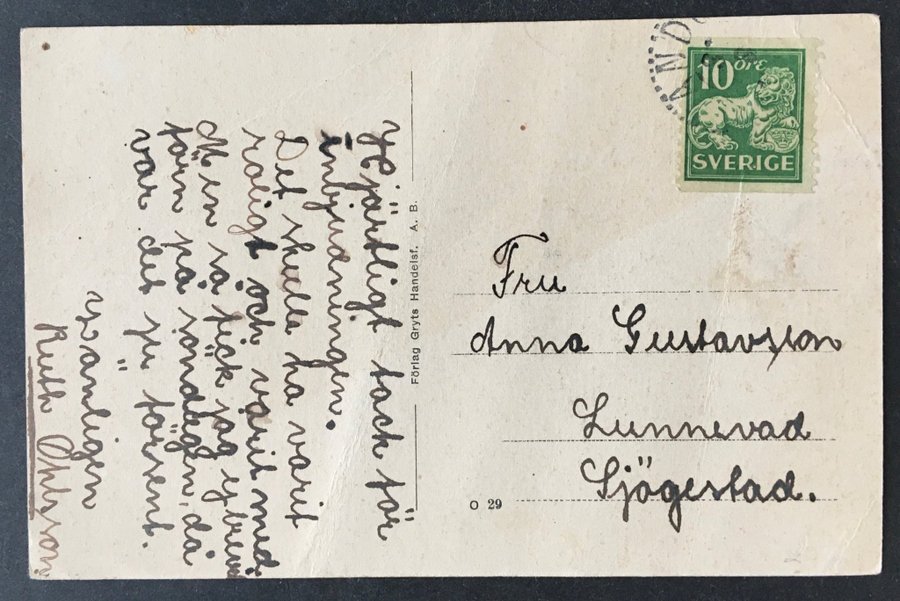 Hjärtligt tack för
inbjudningen.
Det skulle ha varit
roligt och varit med.
Men så fick jag ej brev
förn på söndagen, då
var det ju försent.
Vänligen
Ruth
Förlag Gryts Handelsf. A. B.
10 öre
SVERIGE
Fru
Anna Gustavsson
Lunnevad
Sjögestad.
O 29